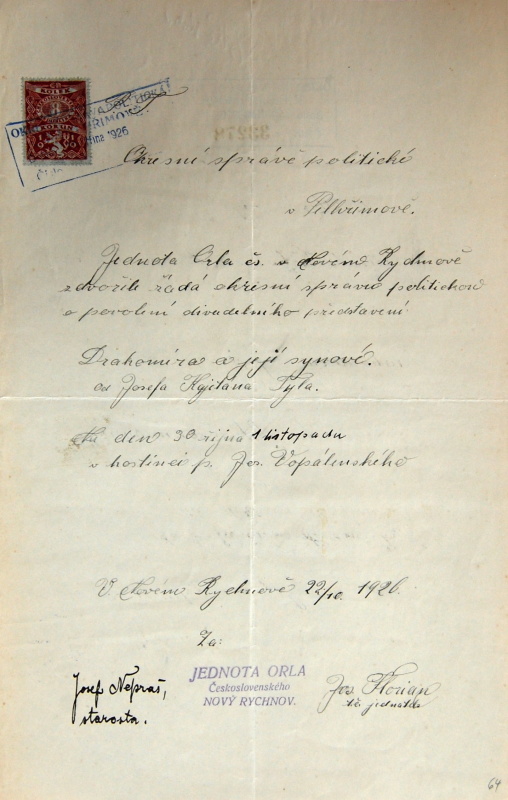 KOLEK
KORUN
1926
Okresní správě politické
v Pelhřimově.
Jednota Orla čs. v Novém Rychnově
zdvořile žádá okresní správu politickou
o povolení divadelního představení
Drahomíra a její synové.
od Josefa Kajetana Tyla.
Na den 30 října 1 listopadu
v hostinci p. Jos. Vopálenského
V Novém Rychnově 22/10. 1926.
Za:
JEDNOTA ORLA
Československého
NOVÝ RYCHNOV.
Josef Nepraš,
starosta.
Jos. Florian
t. č. jednatel
64